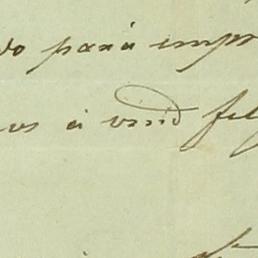 do para impr
os a vind fel